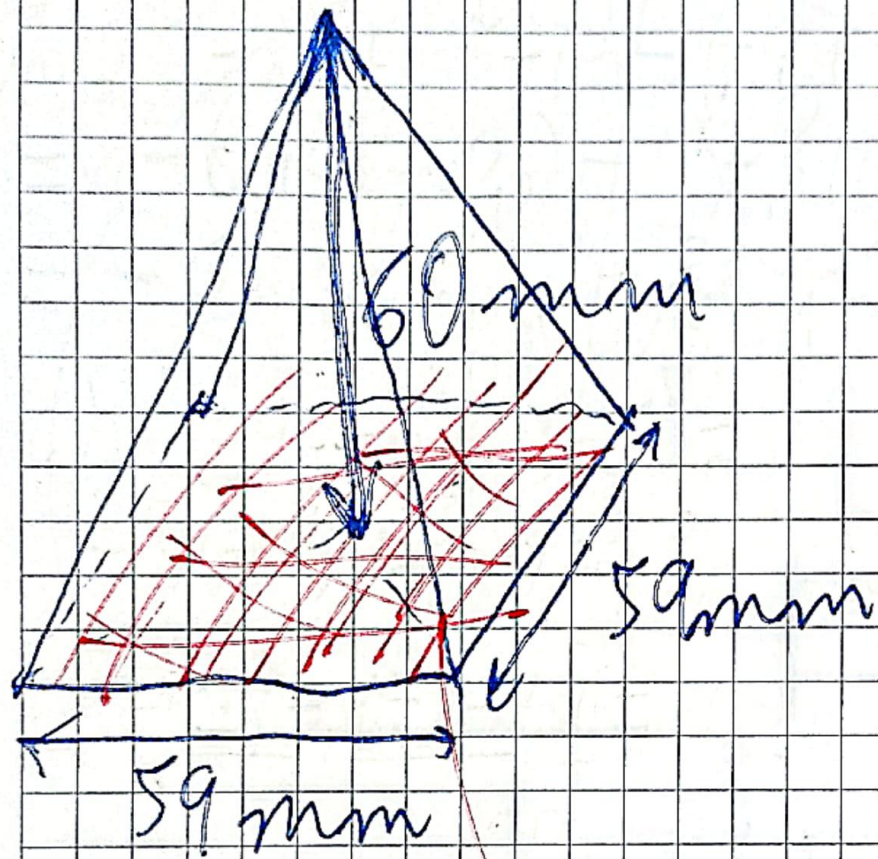 60 mm
59 mm
59 mm